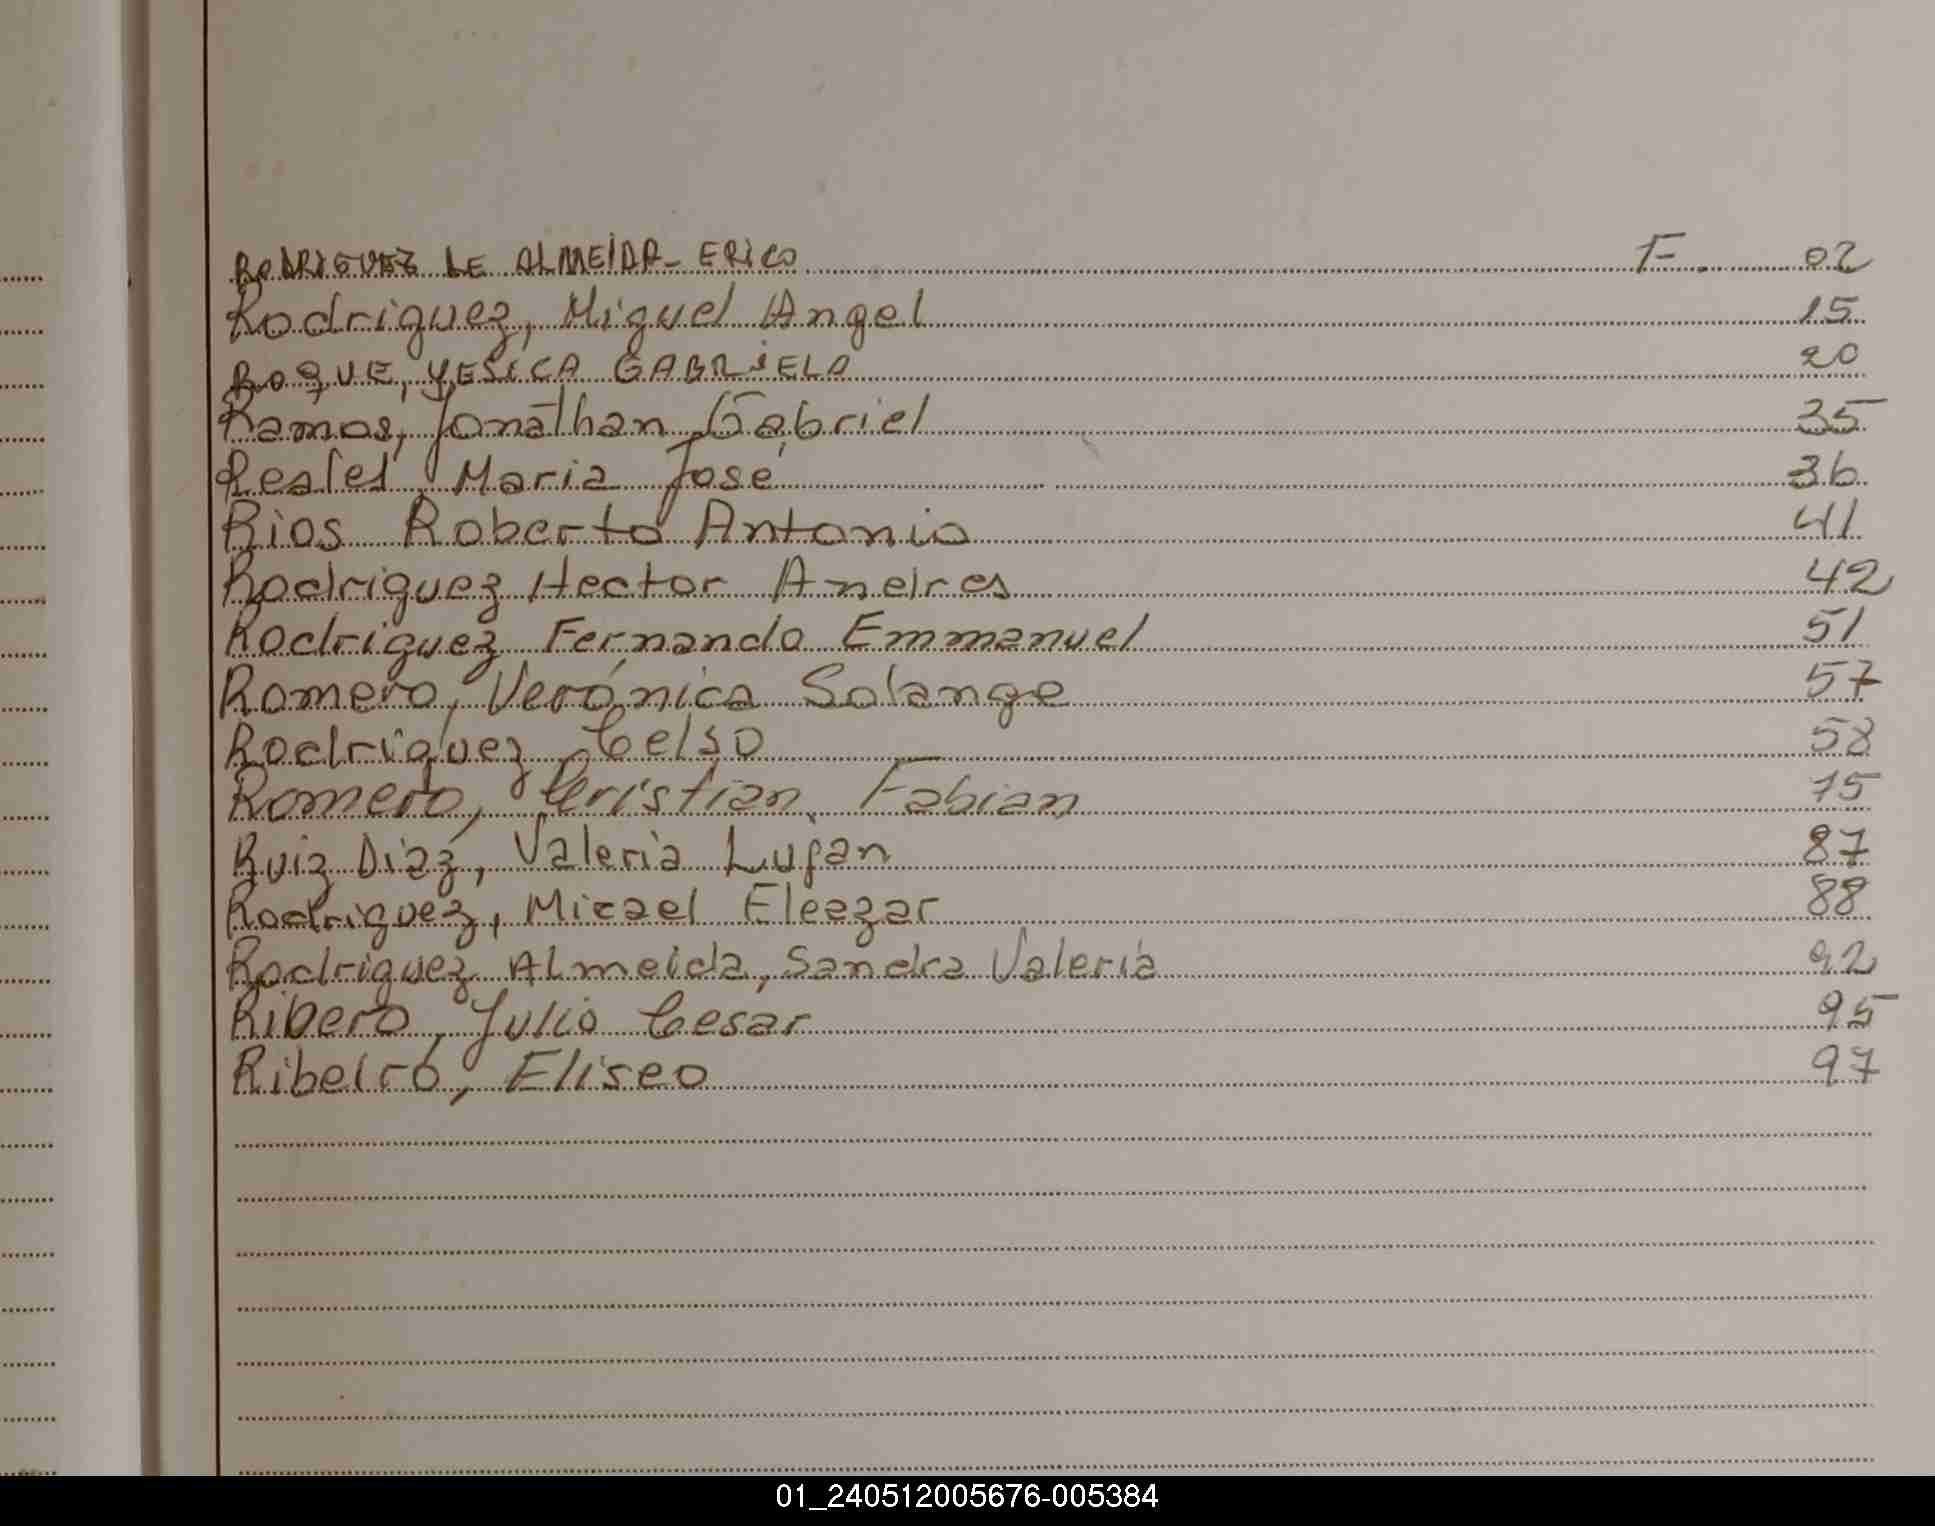 RODRIGUEZ DE ALMEIDA - ERICO F. 02
Rodriguez, Miguel Angel 15
ROQUE, YESICA GABRIELA 20
Ramos, Jonathan Gabriel 35
Reales, Maria José 36
Rios Roberto Antonio 41
Rodriguez Hector Andres 42
Rodriguez Fernando Emmanuel 51
Romero, Verónica Solange 57
Rodriguez Celso 58
Romero, Cristian Fabian 75
Ruiz Diaz, Valeria Lujan 87
Rodriguez, Micael Eleezar 88
Rodriguez Almeida, Sandra Valeria 92
Ribero, Julio Cesar 95
Ribeiro, Eliseo 97
01_240512005676-005384